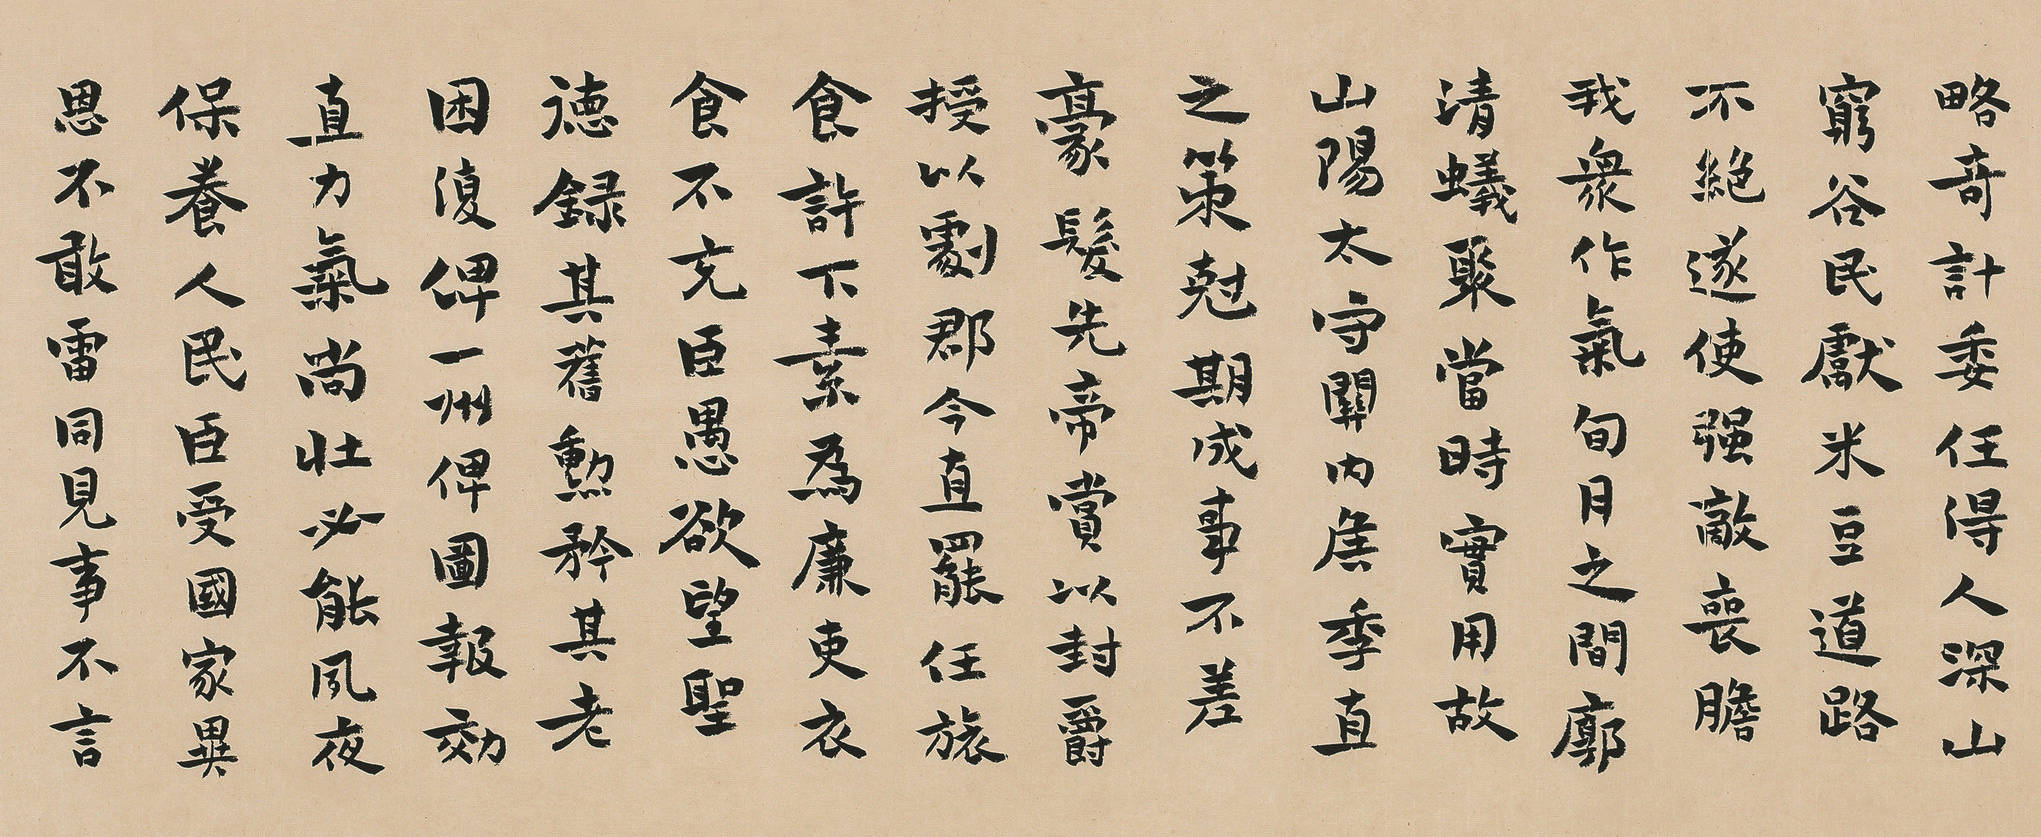 略奇計委任得人深山
窮谷民獻米豆道路
不絕遂使强敵喪膽
我衆作氣旬月之間廓
清蟻聚當時實用故
山陽太守關內侯季直
之策尅期成事不差
豪髮先帝賞以封爵
授以劇郡今直罷任旅
食許下素爲廉吏衣
食不充臣愚欲望聖
德録其舊勳矜其老
困復俾一州俾圖報効
直力氣尚壯必能夙夜
保養人民臣受國家異
恩不敢雷同見事不言